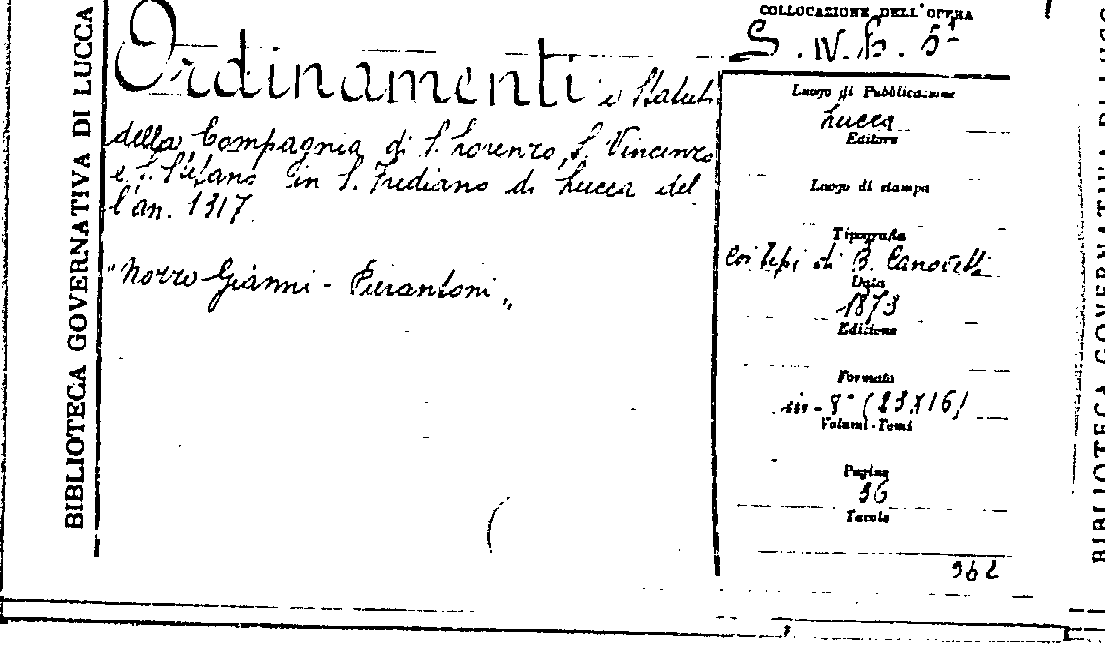 BIBLIOTECA GOVERNATIVA DI LUCCA
Ordinamenti e Statuti
della Compagnia di S. Lorenzo, S. Vincenzo
e S. Stefano in S. Frediano di Lucca del
l'an. 1317.
"Nozze Gianni - Pierantoni"
COLLOCAZIONE DELL'OPERA
Luogo di Pubblicazione
Lucca
Editore
Luogo di stampa
Tipografia
Coi tipi di B. Canovetti
Data
1873
Edizione
Formato
in-8° (23X16)
Volumi-Tomi
Pagine
36
Tavole
362
BIBLIOTECA GOVERNATIVA DI LUCCA